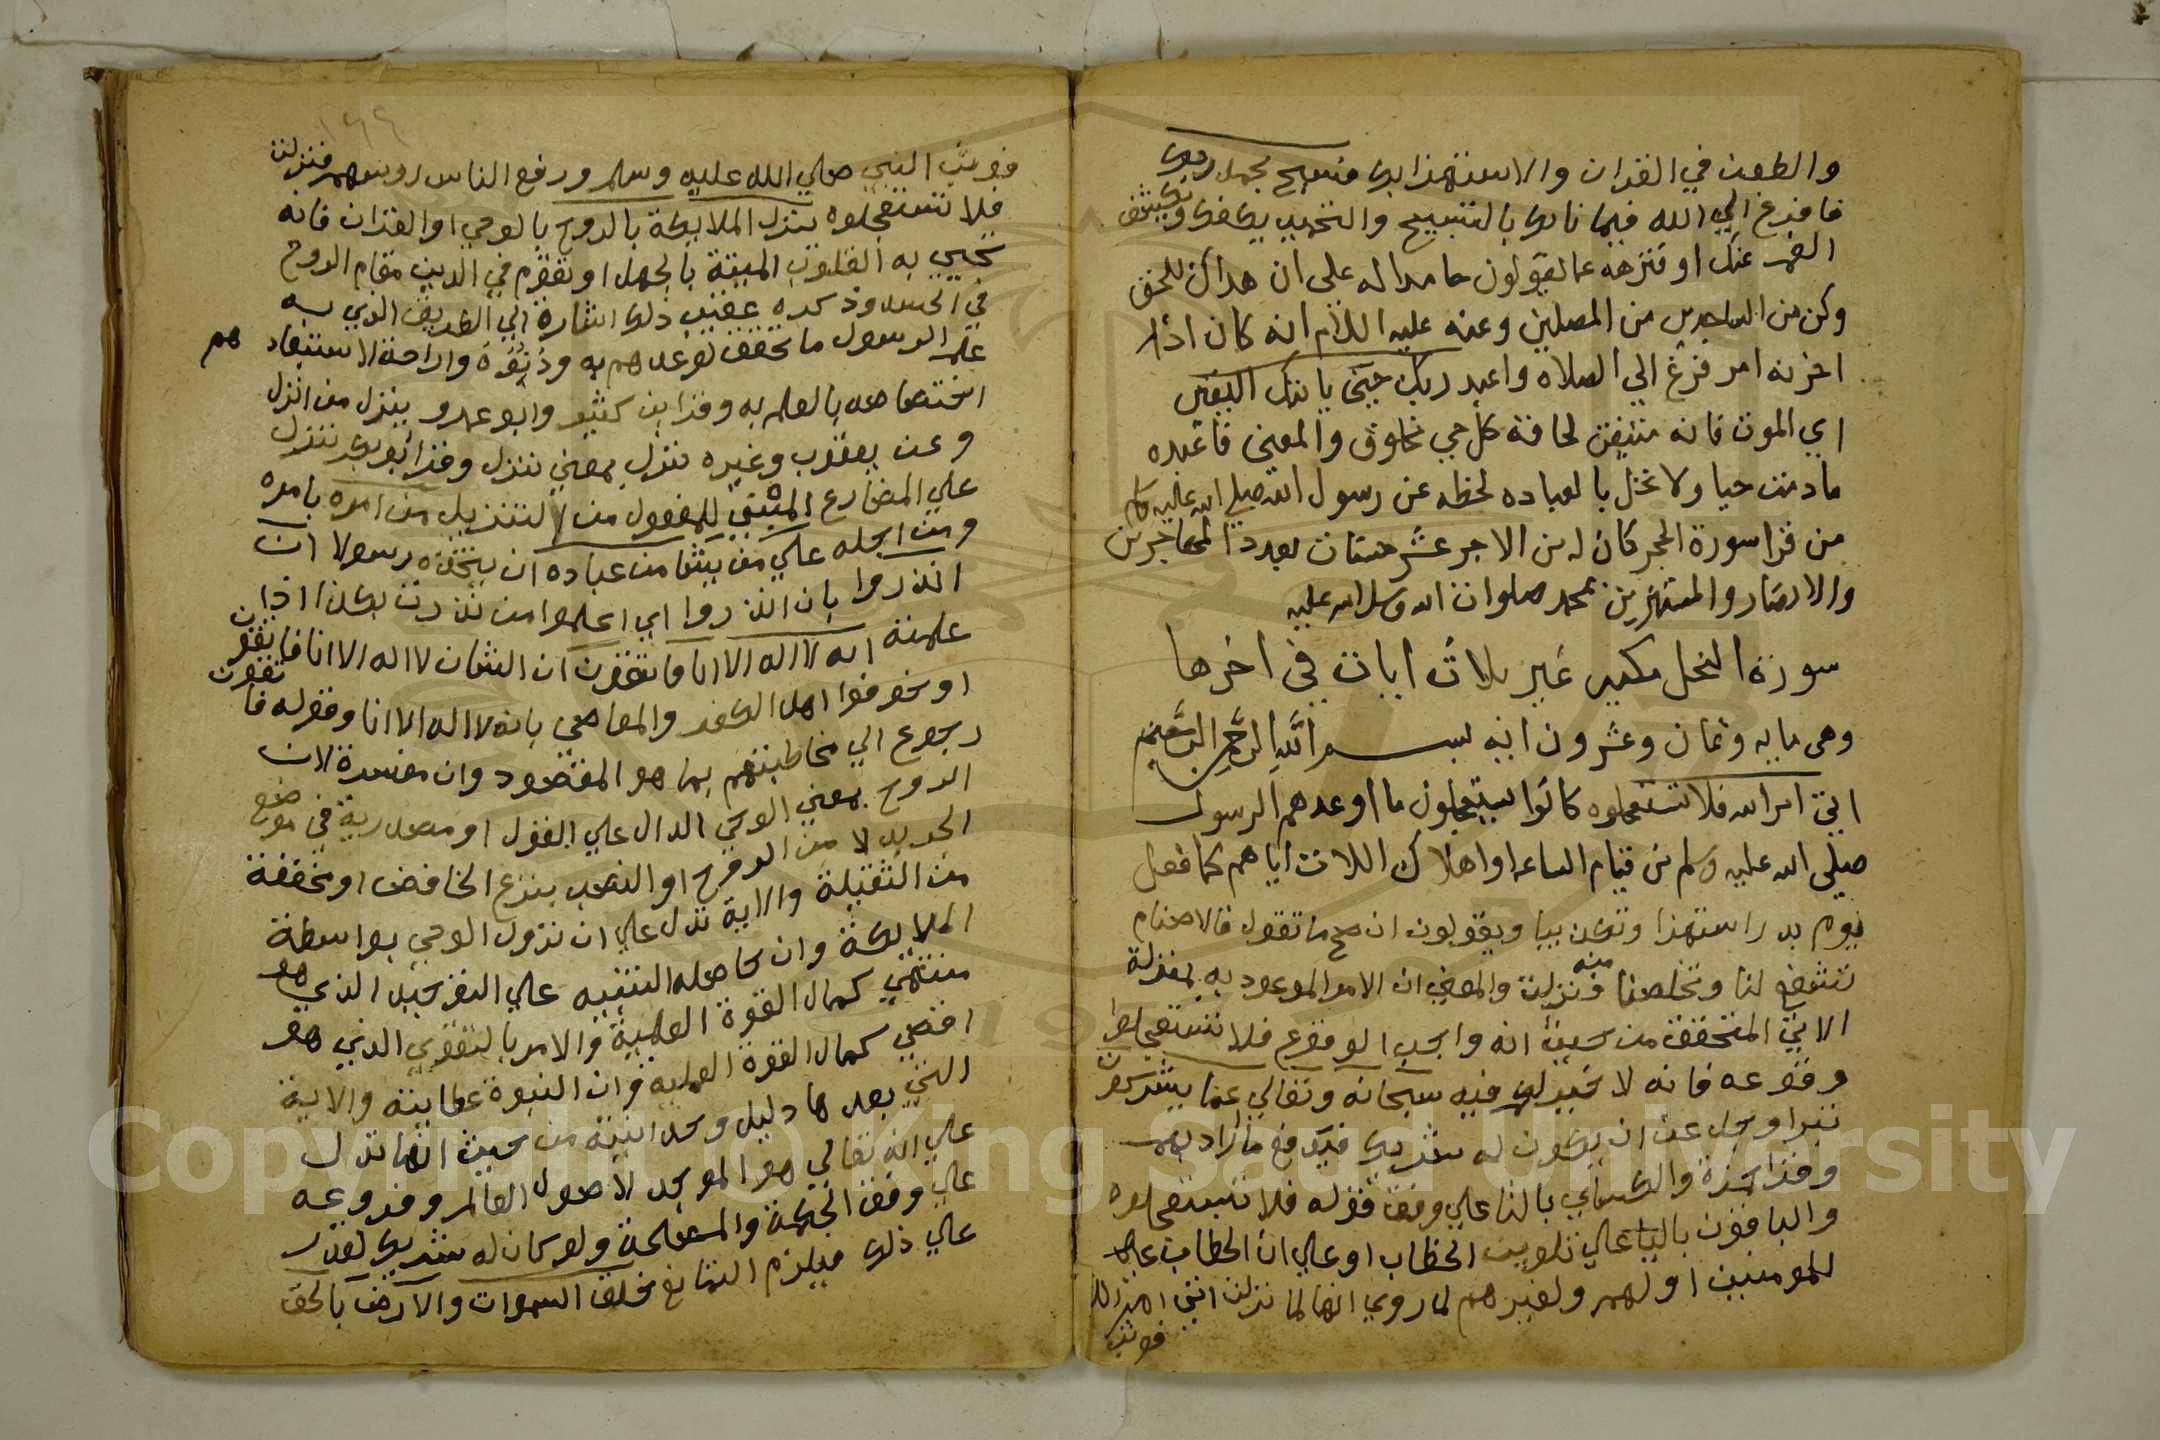 والطعن في القران والاستهزا بك فسبح بحمد ربك
فافزع الي الله فيما نابك بالتسبيح والتحميد يكفك ويكشف
الغم عنك او فنزهه عما يقولون حامدا له على ان هداك للحق
وكن من الساجدين من المصلين وعنه عليه السلام انه كان اذا
احزنه امر فزع الي الصلاه واعبد ربك حتى ياتيك اليقين
اي الموت فانه متيقن لحاقه كل حي مخلوق والمعنى فاعبده
مادمت حيا ولا تخل بالعباده لحظه عن رسول الله صلى الله عليه وسلم
من قرا سورة الحجر كان له من الاجر عشر حسنات بعدد المهاجرين
والانصار والمستهزين بمحمد صلوات الله وسلامه عليه
سورة النحل مكيه غير ثلاث ايات في اخرها
وهى مايه وثمان وعشرون ايه بسم الله الرحمن الرحيم
اتى امر الله فلا تستعجلوه كانوا يستعجلون ما اوعدهم الرسول
صلى الله عليه وسلم من قيام الساعه او اهلاك الله تعالى اياهم كما فعل
يوم بدر استهزا وتكذيبا ويقولون ان صح ما تقول فالاصنام
تشفع لنا وتخلصنا منه فنزلت والمعنى ان الامر الموعود به بمنزلة
الاتي المتحقق من حيث انه واجب الوقوع فلا تستعجلوا
وقوعه فانه لا خير لكم فيه سبحانه وتعالي عما يشركون
تبرا وجل عن ان يكون له شريك فيدفع ما اراد بهم
وقرا حمزة والكساي بالتا علي وفق قوله فلا تستعجلوه
والباقون باليا علي تلوين الخطاب او علي ان الخطاب
للمومنين اولهم ولغيرهم لما روي انها لما نزلت اتى امر الله
فوثب
١٩٩
فوثب النبي صلي الله عليه وسلم ورفع الناس روسهم فنزلت
فلا تستعجلوه ينزل الملايكة بالروح بالوحي او القران فانه
يحيي به القلوب الميتة بالجهل او يقوم في الدين مقام الروح
في الجسد وذكره عقيب ذلك اشارة الي الطريق الذي به
علم الرسول ما تحقق موعدهم به ودنوه وازاحة الاستبعاد هم
اختصاصه بالعلم به وقرا ابن كثير وابو عمرو ينزل من انزل
وعن يعقوب وغيره تنزل بمعنى تتنزل وقرا ابو بكر تنزل
علي المضارع المبني للمفعول من التنزيل من امره بامره
ومن اجله علي من يشا من عباده ان يتخذه رسولا ان
انذروا بان انذروا اي اعلموا من نذرت بكذا اذا
علمته انه لا اله الا انا فاتقون ان الشان لا اله الا انا فاتقون
او خوفوا اهل الكفر والمعاصي بانه لا اله الا انا وقوله فاتقون
رجوع الي مخاطبتهم بما هو المقصود وان مفسرة لان
الروح بمعني الوحي الدال علي القول او مصدرية في موضع
الجر بدلا من الروح او النصب بنزع الخافض او مخففة
من الثقيلة والاية تدل علي ان نزول الوحي بواسطة
الملايكة وان حاصله التنبيه علي التوحيد الذي هو
منتهي كمال القوة العلمية والامر بالتقوي الذي هو
اقصي كمال القوة العملية وان النبوة عطايية والاية
التي بعدها دليل وحدانيته من حيث انها تدل
علي انه تعالي هو الموجد لاصول العالم وفروعه
علي وفق الحكمة والمصلحة ولو كان له شريك لقدر
علي ذلك فيلزم التمانع خلق السموات والارض بالحق